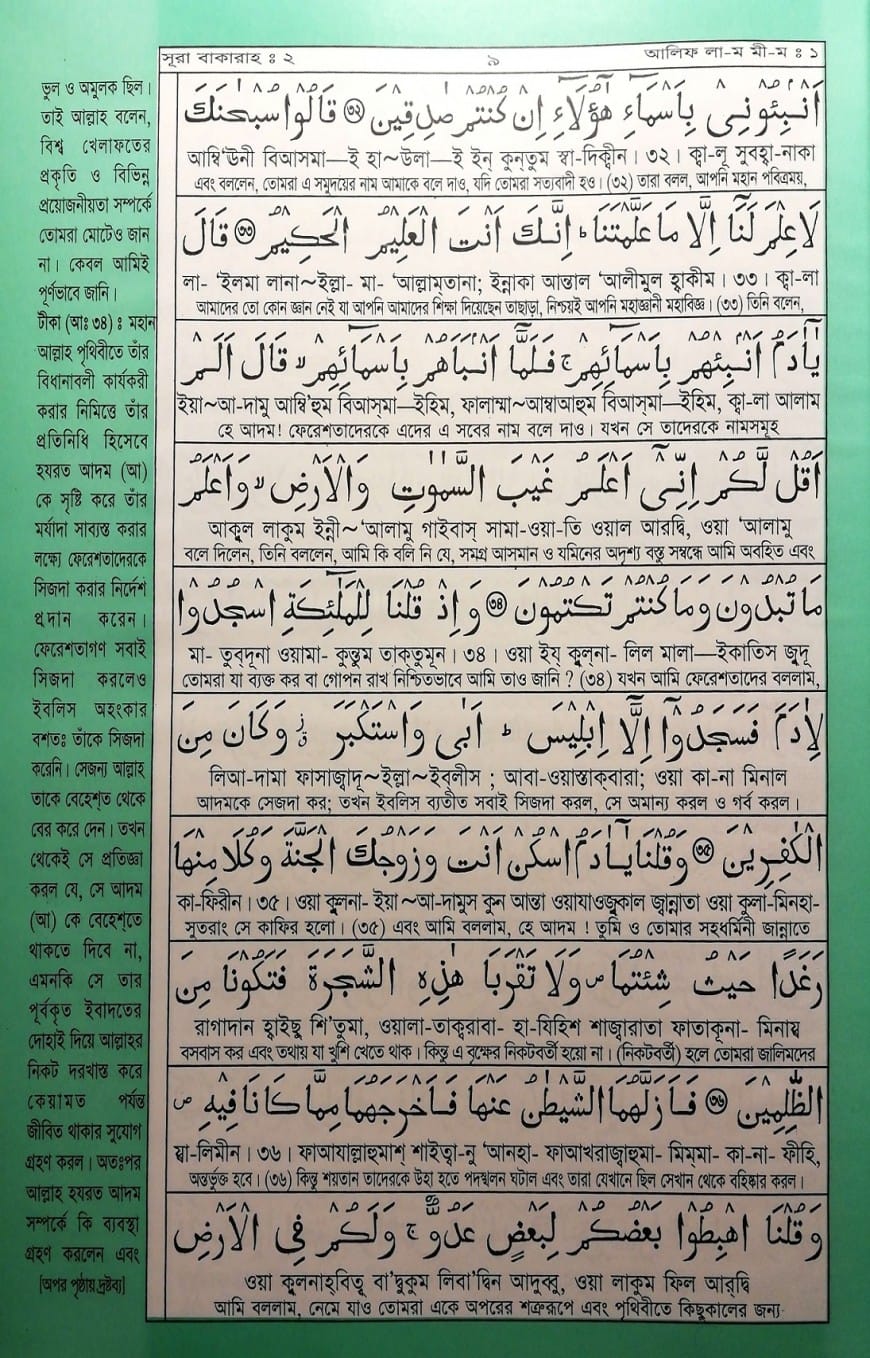 সূরা বাকারাহ : ২
৯
আলিফ লা-ম মী-ম : ১
أَنْۢبِـُٔوْنِىْ بِأَسْمَآءِ هٰٓؤُلَآءِ إِنْ كُنْتُمْ صٰدِقِيْنَ ﴿৩২﴾ قَالُوْا سُبْحٰنَكَ
আম্বি'ঊনী বিআসমা—ই হা~উলা—ই ইন্ কুন্‌তুম স্বা-দিক্বীন। ৩২। ক্বা-লূ সুবহ্বা-নাকা
এবং বললেন, তোমরা এ সমুদয়ের নাম আমাকে বলে দাও, যদি তোমরা সত্যবাদী হও। (৩২) তারা বলল, আপনি মহান পবিত্রময়,
لَا عِلْمَ لَنَآ إِلَّا مَا عَلَّمْتَنَا ؕ إِنَّكَ أَنْتَ الْعَلِيْمُ الْحَكِيْمُ ﴿৩৩﴾ قَالَ
লা- 'ইলমা লানা~ইল্লা- মা- 'আল্লাম্‌তানা; ইন্নাকা আন্তাল 'আলীমুল হ্বাকীম। ৩৩। ক্বা-লা
আমাদের তো কোন জ্ঞান নেই যা আপনি আমাদের শিক্ষা দিয়েছেন তাছাড়া, নিশ্চয়ই আপনি মহাজ্ঞানী মহাবিজ্ঞ। (৩৩) তিনি বলেন,
يٰٓاٰدَمُ أَنْۢبِئْهُمْ بِأَسْمَآئِهِمْ ۚ فَلَمَّآ أَنْۢبَأَهُمْ بِأَسْمَآئِهِمْ ۙ قَالَ أَلَمْ
ইয়া~আ-দামু আম্বি'হুম বিআস্‌মা—ইহিম, ফালাম্মা~আম্বাআহুম বিআস্‌মা—ইহিম, ক্বা-লা আলাম
হে আদম! ফেরেশতাদেরকে এদের এ সবের নাম বলে দাও। যখন সে তাদেরকে নামসমূহ
أَقُلْ لَّكُمْ إِنِّىْٓ أَعْلَمُ غَيْبَ السَّمٰوٰتِ وَالْأَرْضِ ۙ وَأَعْلَمُ
আকুল লাকুম ইন্নী~'আলামু গাইবাস্ সামা-ওয়া-তি ওয়াল আরদ্বি, ওয়া 'আলামু
বলে দিলেন, তিনি বললেন, আমি কি বলি নি যে, সমগ্র আসমান ও যমিনের অদৃশ্য বস্তু সম্বন্ধে আমি অবহিত এবং
مَا تُبْدُوْنَ وَمَا كُنْتُمْ تَكْتُمُوْنَ ﴿৩৪﴾ وَإِذْ قُلْنَا لِلْمَلٰٓئِكَةِ اسْجُدُوْا
মা- তুব্‌দূনা ওয়ামা- কুন্তুম তাক্‌তুমূন। ৩৪। ওয়া ইয্ কুল্‌না- লিল মালা—ইকাতিস জুদূ
তোমরা যা ব্যক্ত কর বা গোপন রাখ নিশ্চিতভাবে আমি তাও জানি ? (৩৪) যখন আমি ফেরেশতাদের বললাম,
لِاٰدَمَ فَسَجَدُوْٓا إِلَّآ إِبْلِيْسَ ؕ أَبٰى وَاسْتَكْبَرَ ٭ۗ وَكَانَ مِنَ
লিআ-দামা ফাসাজ্বাদূ~ইল্লা~ইব্‌লীস ; আবা-ওয়াস্তাক্‌বারা; ওয়া কা-না মিনাল
আদমকে সেজদা কর; তখন ইবলিস ব্যতীত সবাই সিজদা করল, সে অমান্য করল ও গর্ব করল।
الْكٰفِرِيْنَ ﴿৩৫﴾ وَقُلْنَا يٰٓاٰدَمُ اسْكُنْ أَنْتَ وَزَوْجُكَ الْجَنَّةَ وَكُلَا مِنْهَا
কা-ফিরীন। ৩৫। ওয়া কুলনা- ইয়া~আ-দামুস কুন আন্তা ওয়াযাওজুকাল জ্বান্নাতা ওয়া কুলা-মিনহা-
সুতরাং সে কাফির হলো। (৩৫) এবং আমি বললাম, হে আদম ! তুমি ও তোমার সহধর্মিনী জান্নাতে
رَغَدًا حَيْثُ شِئْتُمَا ۪ وَلَا تَقْرَبَا هٰذِهِ الشَّجَرَةَ فَتَكُوْنَا مِنَ
রাগাদান হ্বাইছু শি'তুমা, ওয়ালা-তাক্বরাবা- হা-যিহিশ শাজ্বারাতা ফাতাকূনা- মিনায্ব
বসবাস কর এবং তথায় যা খুশি খেতে থাক। কিন্তু এ বৃক্ষের নিকটবর্তী হয়ো না। (নিকটবর্তী) হলে তোমরা জালিমদের
الظّٰلِمِيْنَ ﴿৩৬﴾ فَأَزَلَّهُمَا الشَّيْطٰنُ عَنْهَا فَأَخْرَجَهُمَا مِمَّا كَانَا فِيْهِ ۪
য্বা-লিমীন। ৩৬। ফাআযাল্লাহুমাশ্ শাইত্বা-নু 'আনহা- ফাআখরাজ্বাহুমা- মিম্‌মা- কা-না- ফীহি,
অন্তর্ভুক্ত হবে। (৩৬) কিন্তু শয়তান তাদেরকে উহা হতে পদস্খলন ঘটাল এবং তারা যেখানে ছিল সেখান থেকে বহিষ্কার করল।
وَقُلْنَا اهْبِطُوْا بَعْضُكُمْ لِبَعْضٍ عَدُوٌّ ۚ وَلَكُمْ فِى الْأَرْضِ
ওয়া কুলনাহ্‌বিত্বূ বা'দ্বুকুম লিবা'দ্বিন আদুব্বু, ওয়া লাকুম ফিল আর্‌দ্বি
আমি বললাম, নেমে যাও তোমরা একে অপরের শত্রুরূপে এবং পৃথিবীতে কিছুকালের জন্য
ভুল ও অমুলক ছিল।
তাই আল্লাহ বলেন,
বিশ্ব খেলাফতের
প্রকৃতি ও বিভিন্ন
প্রয়োজনীয়তা সম্পর্কে
তোমরা মোটেও জান
না। কেবল আমিই
পূর্ণভাবে জানি।
টীকা (আঃ ৩৪) : মহান
আল্লাহ পৃথিবীতে তাঁর
বিধানাবলী কার্যকরী
করার নিমিত্তে তাঁর
প্রতিনিধি হিসেবে
হযরত আদম (আ)
কে সৃষ্টি করে তাঁর
মর্যাদা সাব্যস্ত করার
লক্ষ্যে ফেরেশতাদেরকে
সিজদা করার নির্দেশ
প্রদান করেন।
ফেরেশতাগণ সবাই
সিজদা করলেও
ইবলিস অহংকার
বশতঃ তাঁকে সিজদা
করেনি। সেজন্য আল্লাহ
তাকে বেহেশ্‌ত থেকে
বের করে দেন। তখন
থেকেই সে প্রতিজ্ঞা
করল যে, সে আদম
(আ) কে বেহেশ্‌তে
থাকতে দিবে না,
এমনকি সে তার
পূর্বকৃত ইবাদতের
দোহাই দিয়ে আল্লাহর
নিকট দরখাস্ত করে
কেয়ামত পর্যন্ত
জীবিত থাকার সুযোগ
গ্রহণ করল। অতঃপর
আল্লাহ হযরত আদম
সম্পর্কে কি ব্যবস্থা
গ্রহণ করলেন এবং
[অপর পৃষ্ঠায় দ্রষ্টব্য]